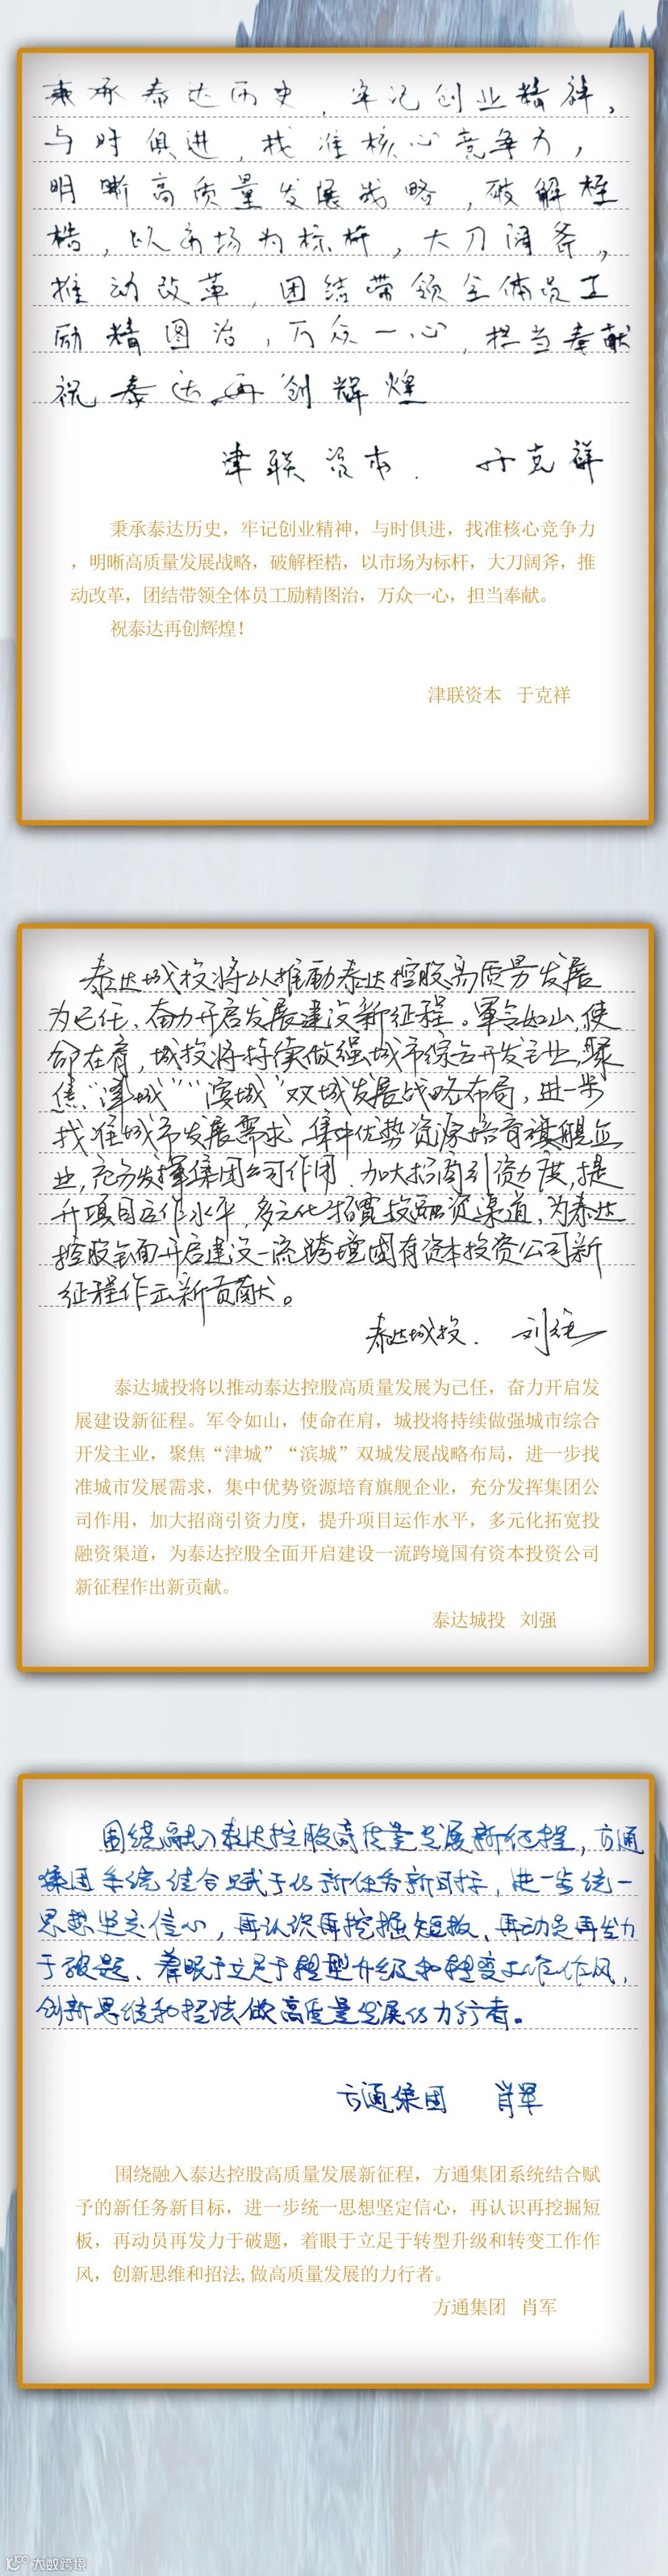 秉承泰达历史，牢记创业精神，
与时俱进，找准核心竞争力，
明晰高质量发展战略，破解桎
梏，以市场为标杆，大刀阔斧，
推动改革，团结带领全体员工
励精图治，万众一心，担当奉献
祝泰达再创辉煌
津联资本．于克祥
秉承泰达历史，牢记创业精神，与时俱进，找准核心竞争力
，明晰高质量发展战略，破解桎梏，以市场为标杆，大刀阔斧，推
动改革，团结带领全体员工励精图治，万众一心，担当奉献。
祝泰达再创辉煌！
津联资本 于克祥
泰达城投将以推动泰达控股高质量发展
为己任，奋力开启发展建设新征程。军令如山，使
命在肩，城投将持续做强城市综合开发主业，聚
焦“津城”“滨城”双城发展战略布局，进一步
找准城市发展需求，集中优势资源培育旗舰企
业，充分发挥集团公司作用，加大招商引资力度，提
升项目运作水平，多元化拓宽投融资渠道，为泰达
控股全面开启建设一流跨境国有资本投资公司新
征程作出新贡献。
泰达城投．刘强
泰达城投将以推动泰达控股高质量发展为己任，奋力开启发
展建设新征程。军令如山，使命在肩，城投将持续做强城市综合
开发主业，聚焦“津城”“滨城”双城发展战略布局，进一步找
准城市发展需求，集中优势资源培育旗舰企业，充分发挥集团公
司作用，加大招商引资力度，提升项目运作水平，多元化拓宽投
融资渠道，为泰达控股全面开启建设一流跨境国有资本投资公司
新征程作出新贡献。
泰达城投 刘强
围绕融入泰达控股高质量发展新征程，方通
集团系统结合赋予的新任务新目标，进一步统一
思想坚定信心，再认识再挖掘短板、再动员再发力
于破题、着眼于立足于转型升级和转变工作作风，
创新思维和招法，做高质量发展的力行者。
方通集团 肖军
围绕融入泰达控股高质量发展新征程，方通集团系统结合赋
予的新任务新目标，进一步统一思想坚定信心，再认识再挖掘短
板，再动员再发力于破题，着眼于立足于转型升级和转变工作作
风，创新思维和招法,做高质量发展的力行者。
方通集团 肖军
大数跨境